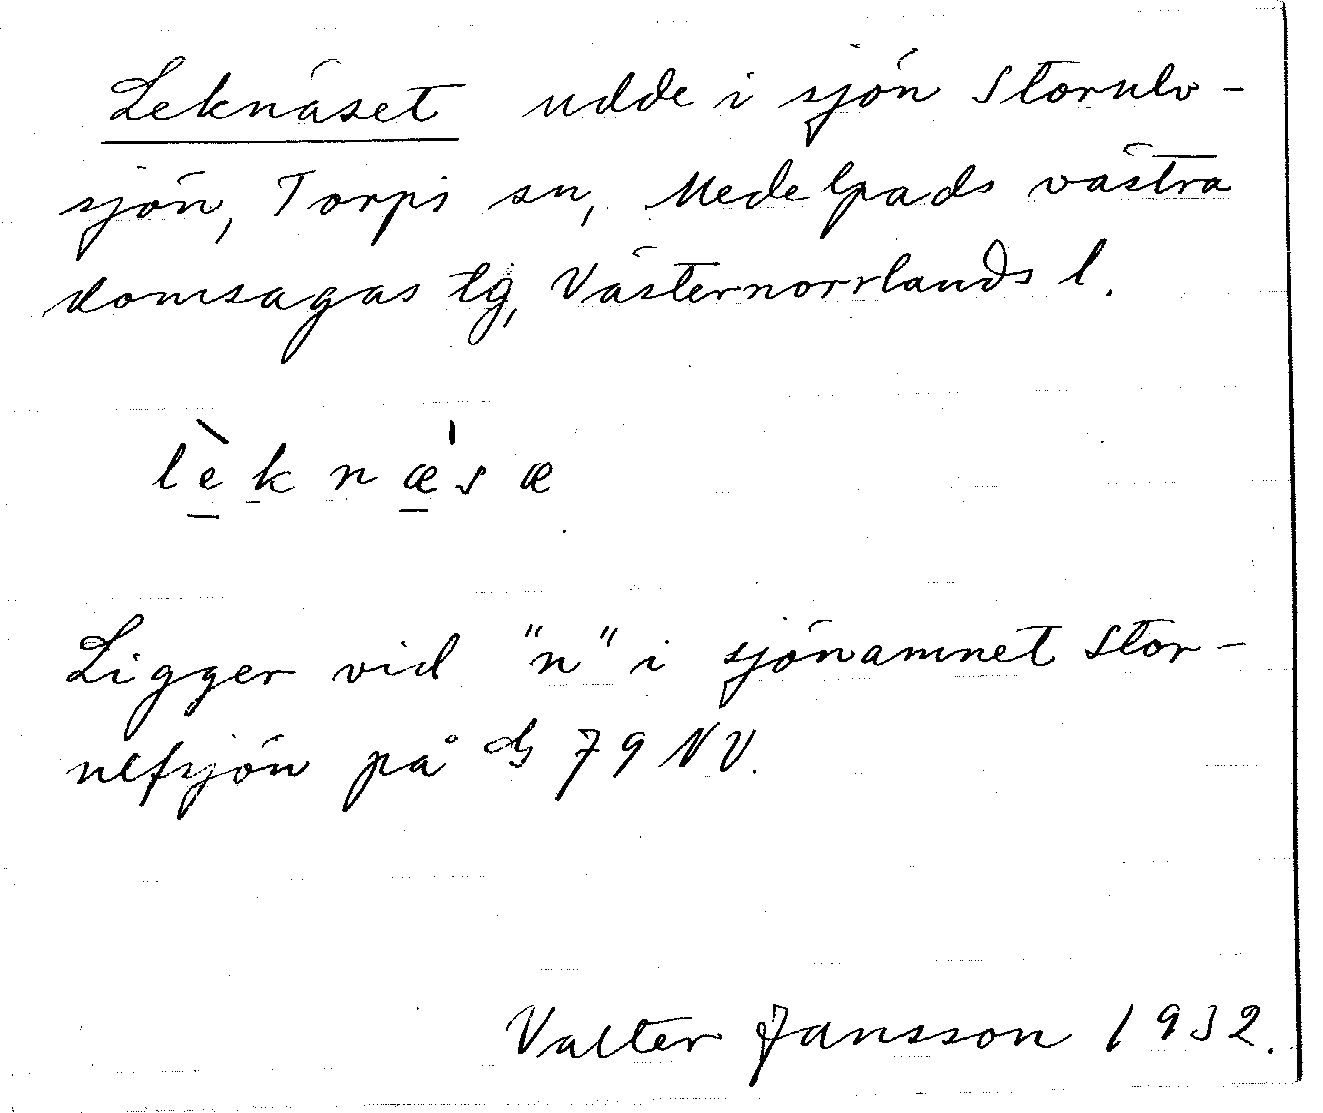 Leknäset udde i sjön Storulv-
sjön, Torps sn, Medelpads västra
domsagas tg, Västernorrlands l.
lèknæ'sæ
Ligger vid "n" i sjönamnet Stor-
ulfsjön på G 79 NV.
Valter Jansson 1932.